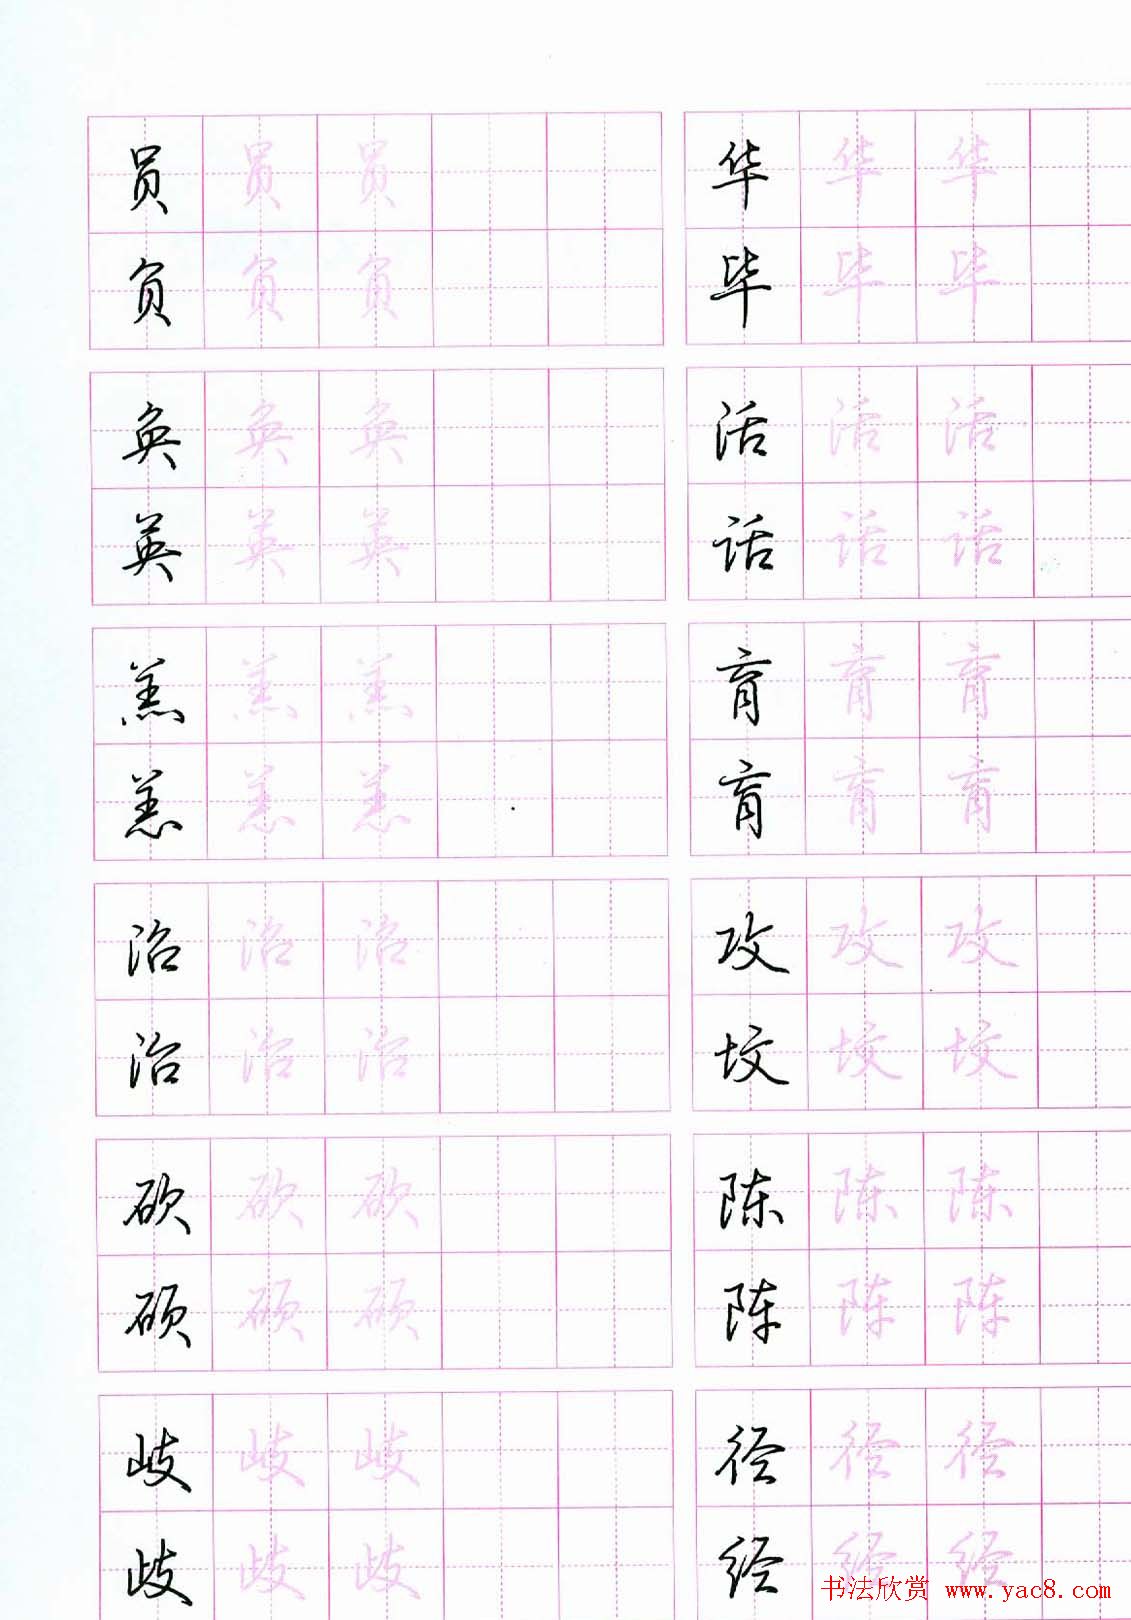 员 员 员 华 华 华
负 负 负 毕 毕 毕
奂 奂 奂 活 活 活
英 英 英 话 话 话
羔 羔 羔 育 育 育
恙 恙 恙 肓 肓 肓
攻 攻 攻
治 治 治 坟 坟 坟
砍 砍 砍 陈 陈 陈
硕 硕 硕 阵 阵 阵
岐 岐 岐 径 径 径
歧 歧 歧 经 经 经
书法欣赏 www.yac8.com